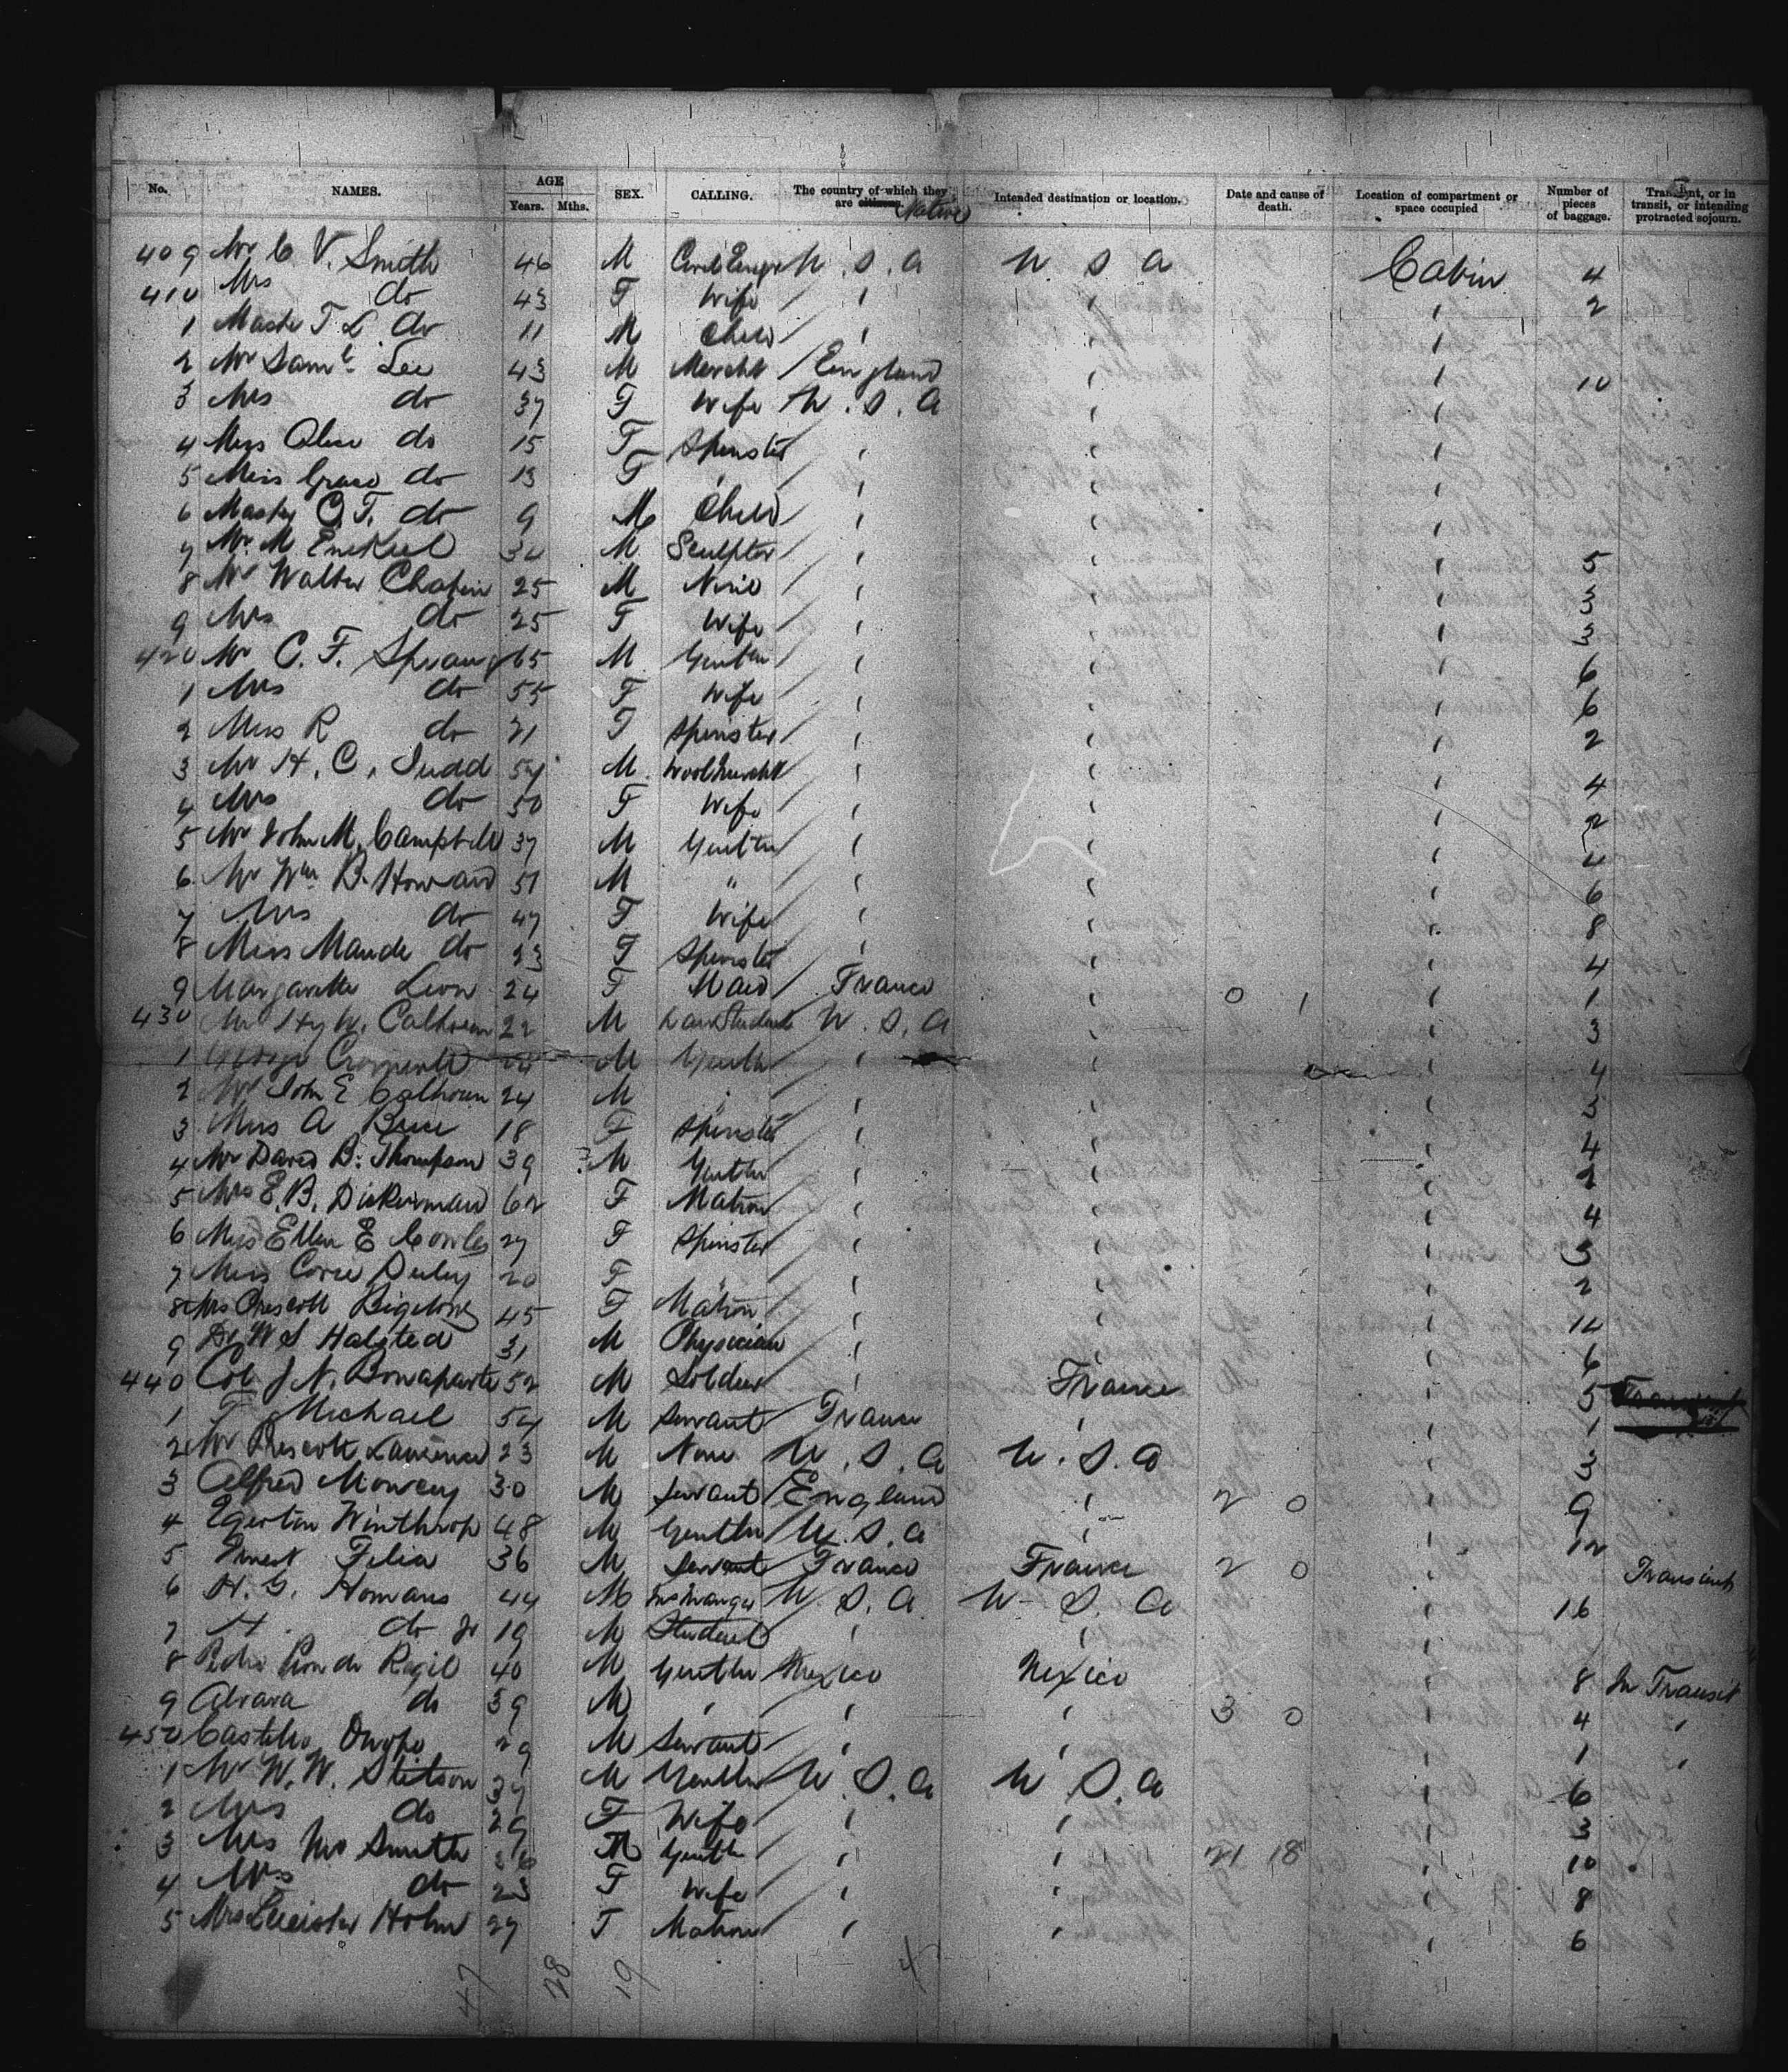 No. NAMES. AGE Years. Mths. SEX. CALLING. The country of which they are citizens. Native Intended destination or location. Date and cause of death. Location of compartment or space occupied Number of pieces of baggage. Transient, or in transit, or intending protracted sojourn.
409 Mr C V. Smith 46 M Civil Engr U.S.A U S A Cabin 4
410 Mrs do 43 F Wife 2
1 Master T L do 11 M Child
2 Mr Saml Lee 43 M Mercht England 10
3 Mrs do 37 F Wife U.S.A
4 Miss Alice do 15 F Spinster
5 Miss Grace do 13 F
6 Master C.T. do 9 M Child
7 Mr M Ezekiel M Sculptor 5
8 Mr Walter Chapin 25 M None 3
9 Mrs do 25 F Wife 3
420 Mr C. F. 65 M Gentln 6
1 Mrs do 55 F Wife 6
2 Miss R do 21 F Spinster 2
3 Mr H. C. Judd 54 M Wool Mercht 4
4 Mrs do 50 F Wife 2
5 Mr John M. Campbell 37 M Gentln 4
6 Mr Wm B. Howard 51 M " 6
7 Mrs do 47 F Wife 8
8 Miss Maude do 23 F Spinster 4
9 Margarette Leon 24 F Maid France 0 1 1
430 Mr Hy W. Calhoun 22 M Law Student U.S.A 3
1 George Cromwell M Gentln 4
2 Mr John E Calhoun 24 M 3
3 Miss A 18 F Spinster 4
4 Mr David B. Thompson 39 M Gentln 2
5 Mrs E. B. Dickerman 62 F Matron 4
6 Miss Ellen E Cowles 27 F Spinster 3
7 Miss 20 F 2
8 Mrs Prescott Bigelow 45 F Matron 14
9 Dr W S Halsted 31 M Physician 6
440 Col J N. Bonaparte 52 M Soldier France 5
1 F Michael 54 M Servant France 1
2 Mr Prescott Lawrence 23 M None U.S.A U.S.A 3
3 Alfred 30 M Servant England 2 0 9
4 Egerton Winthrop 48 M Gentln U.S.A 12
5 Ernest Felix 36 M Servant France France 2 0 Transient
6 H. S. Homans 44 M U.S.A U.S.A 16
7 H do Jr 19 M Student
8 Pedro Regil 40 M Gentln Mexico Mexico 8 In Transit
9 Alvara do 39 M 3 0 4
450 Castillo 29 M Servant 1
1 Mr W. W. Stetson 37 M Gentln U.S.A U.S.A 6
2 Mrs do 29 F Wife 3
3 Smith M Gentln 21 18 10
4 Mrs do 23 F Wife 8
5 Mrs 27 F Matron 6
47 28 19 4